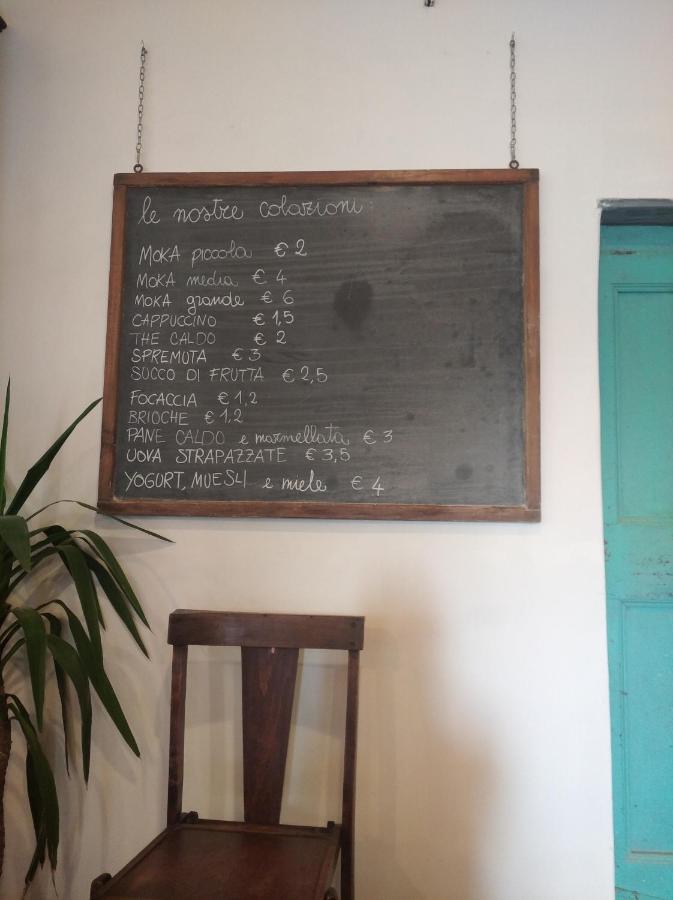 le nostre colazioni:
MOKA piccola € 2
MOKA media € 4
MOKA grande € 6
CAPPUCCINO € 1,5
THE CALDO € 2
SPREMUTA € 3
SUCCO DI FRUTTA € 2,5
FOCACCIA € 1,2
BRIOCHE € 1,2
PANE CALDO e marmellata € 3
UOVA STRAPAZZATE € 3,5
YOGURT, MUESLI e miele € 4